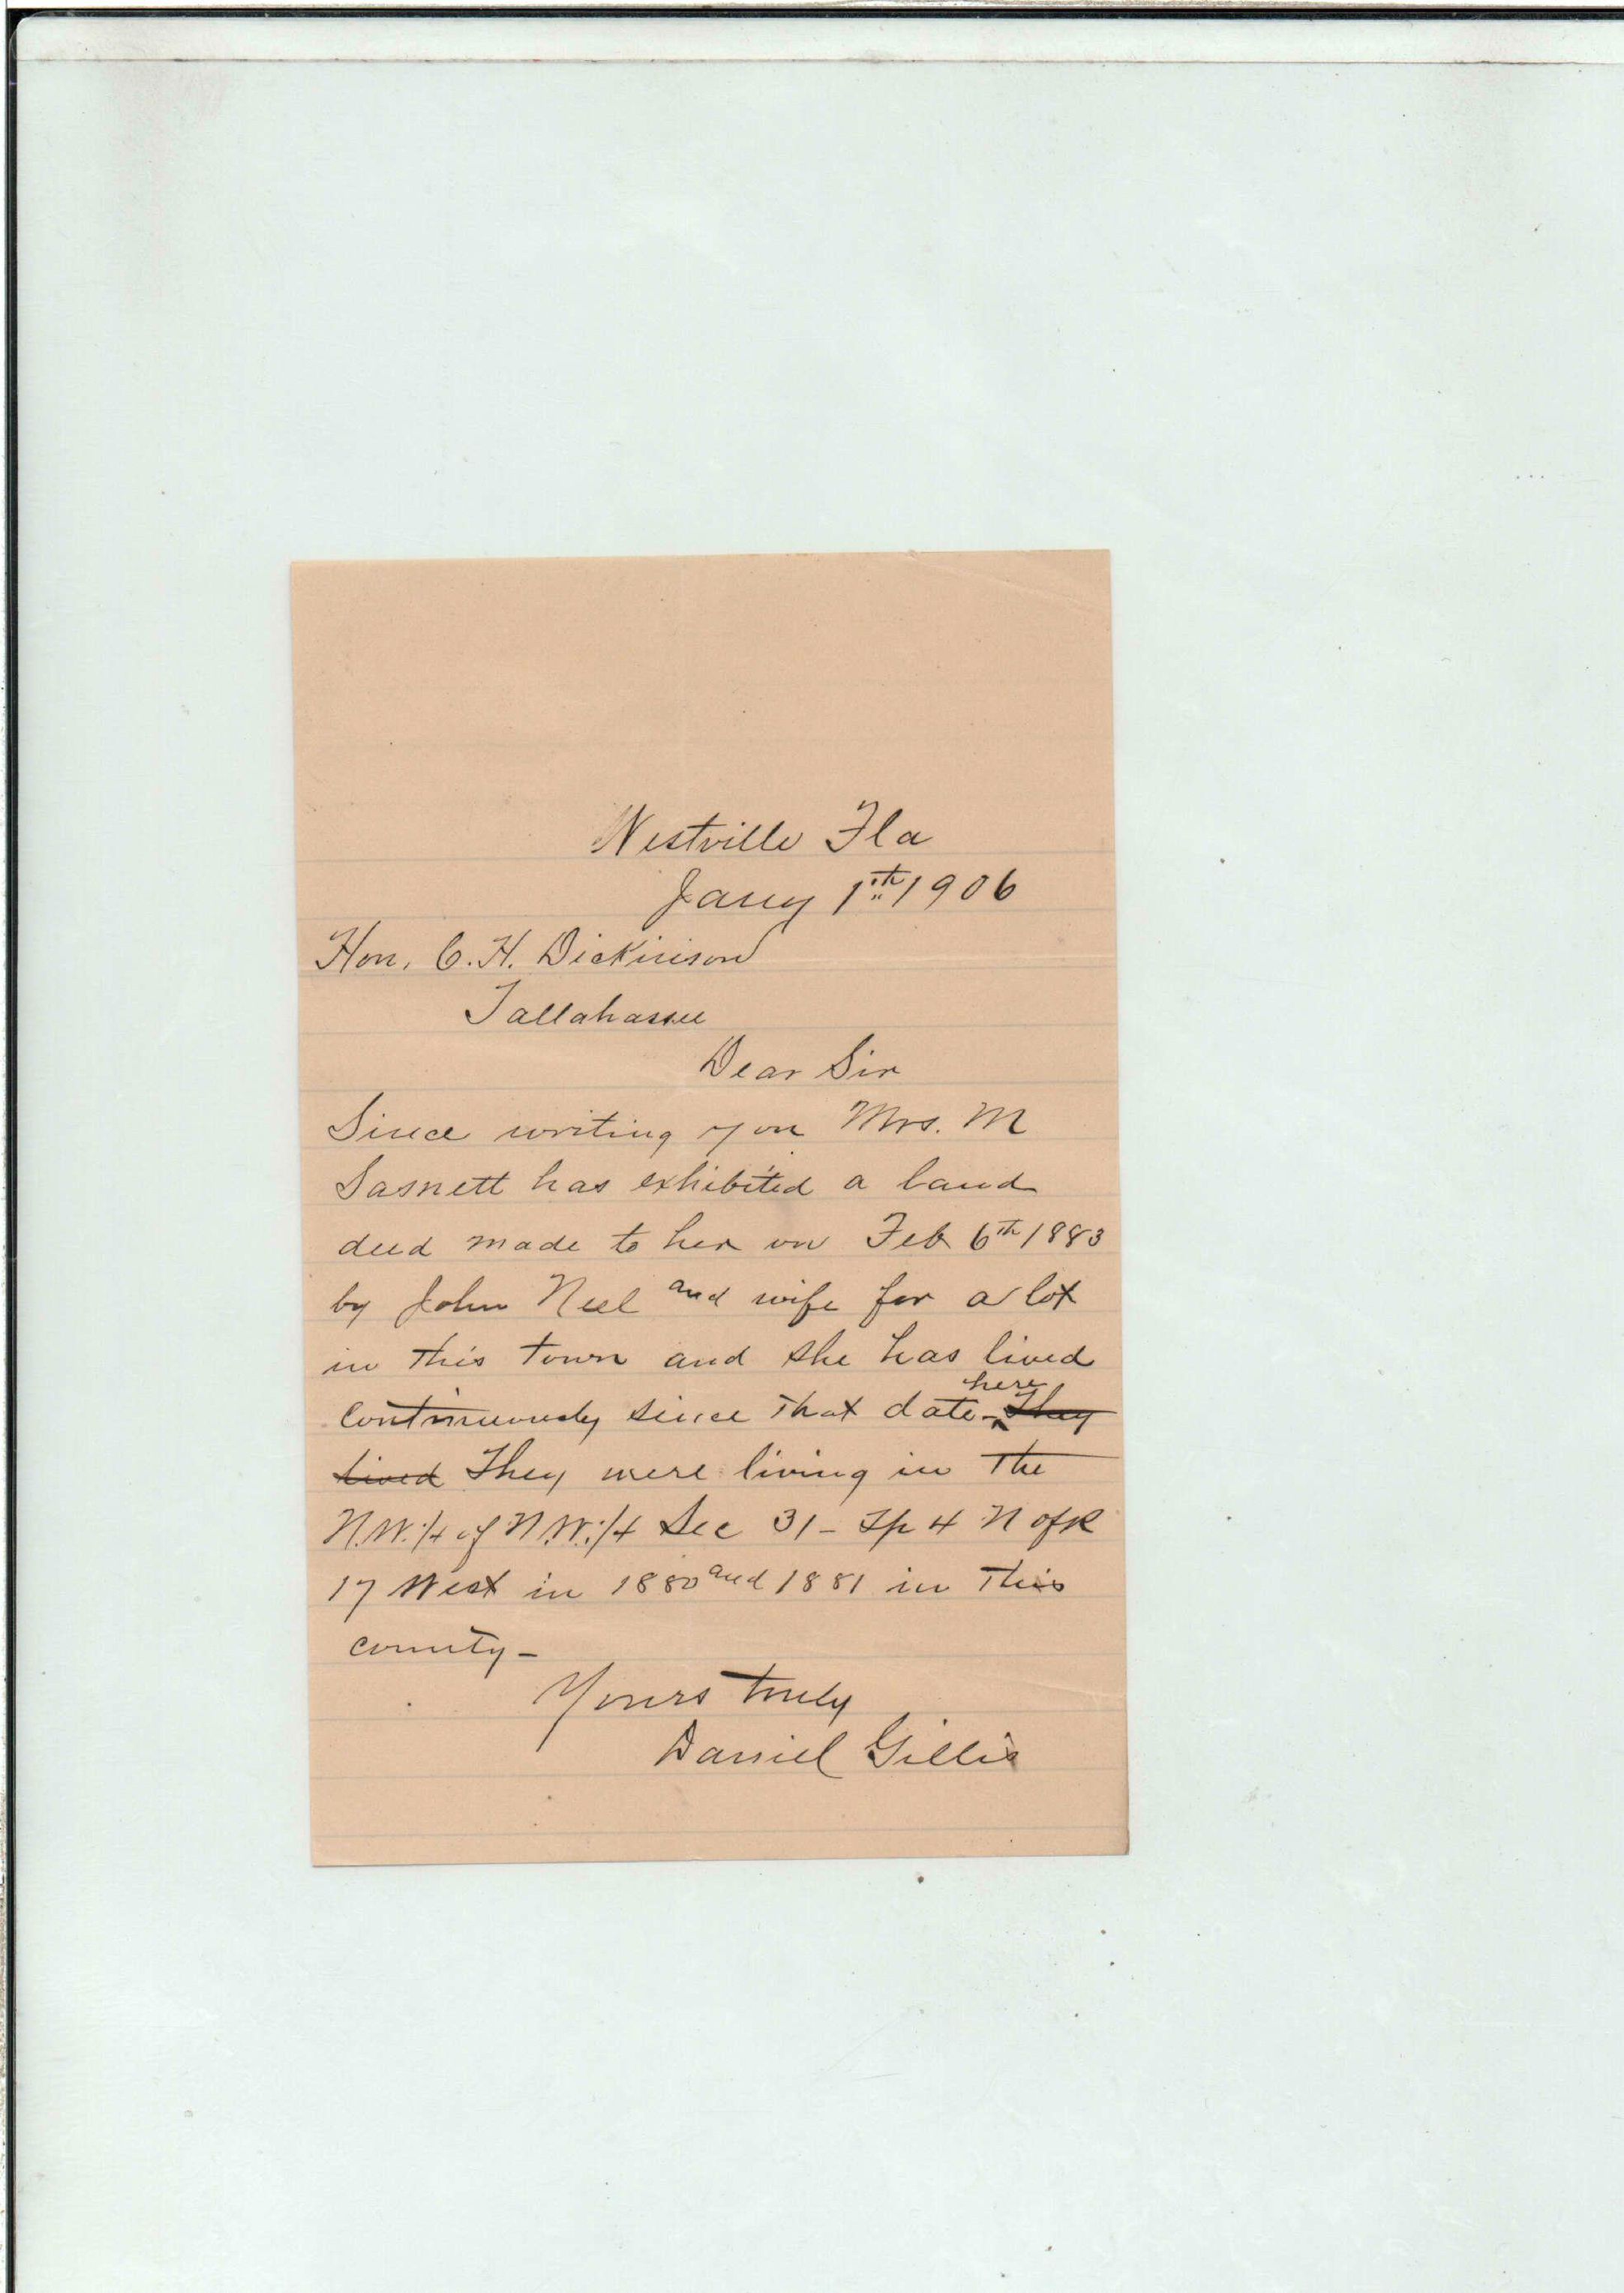 Westville Fla
Jany 1th 1906
Hon. C. H. Dickinson
Tallahassee
Dear Sir
Since writing you Mrs. M
Sasnett has exhibited a land
deed made to her on Feb 6th 1883
by John Neel and wife for a lot
in this town and she has lived
here
continuously since that date - They
lived They were living in the
N.W. 1/4 of N.W. 1/4 Sec 31 - Tp 4 N of R
17 West in 1880 and 1881 in this
county -
Yours truly
Daniel Gillis